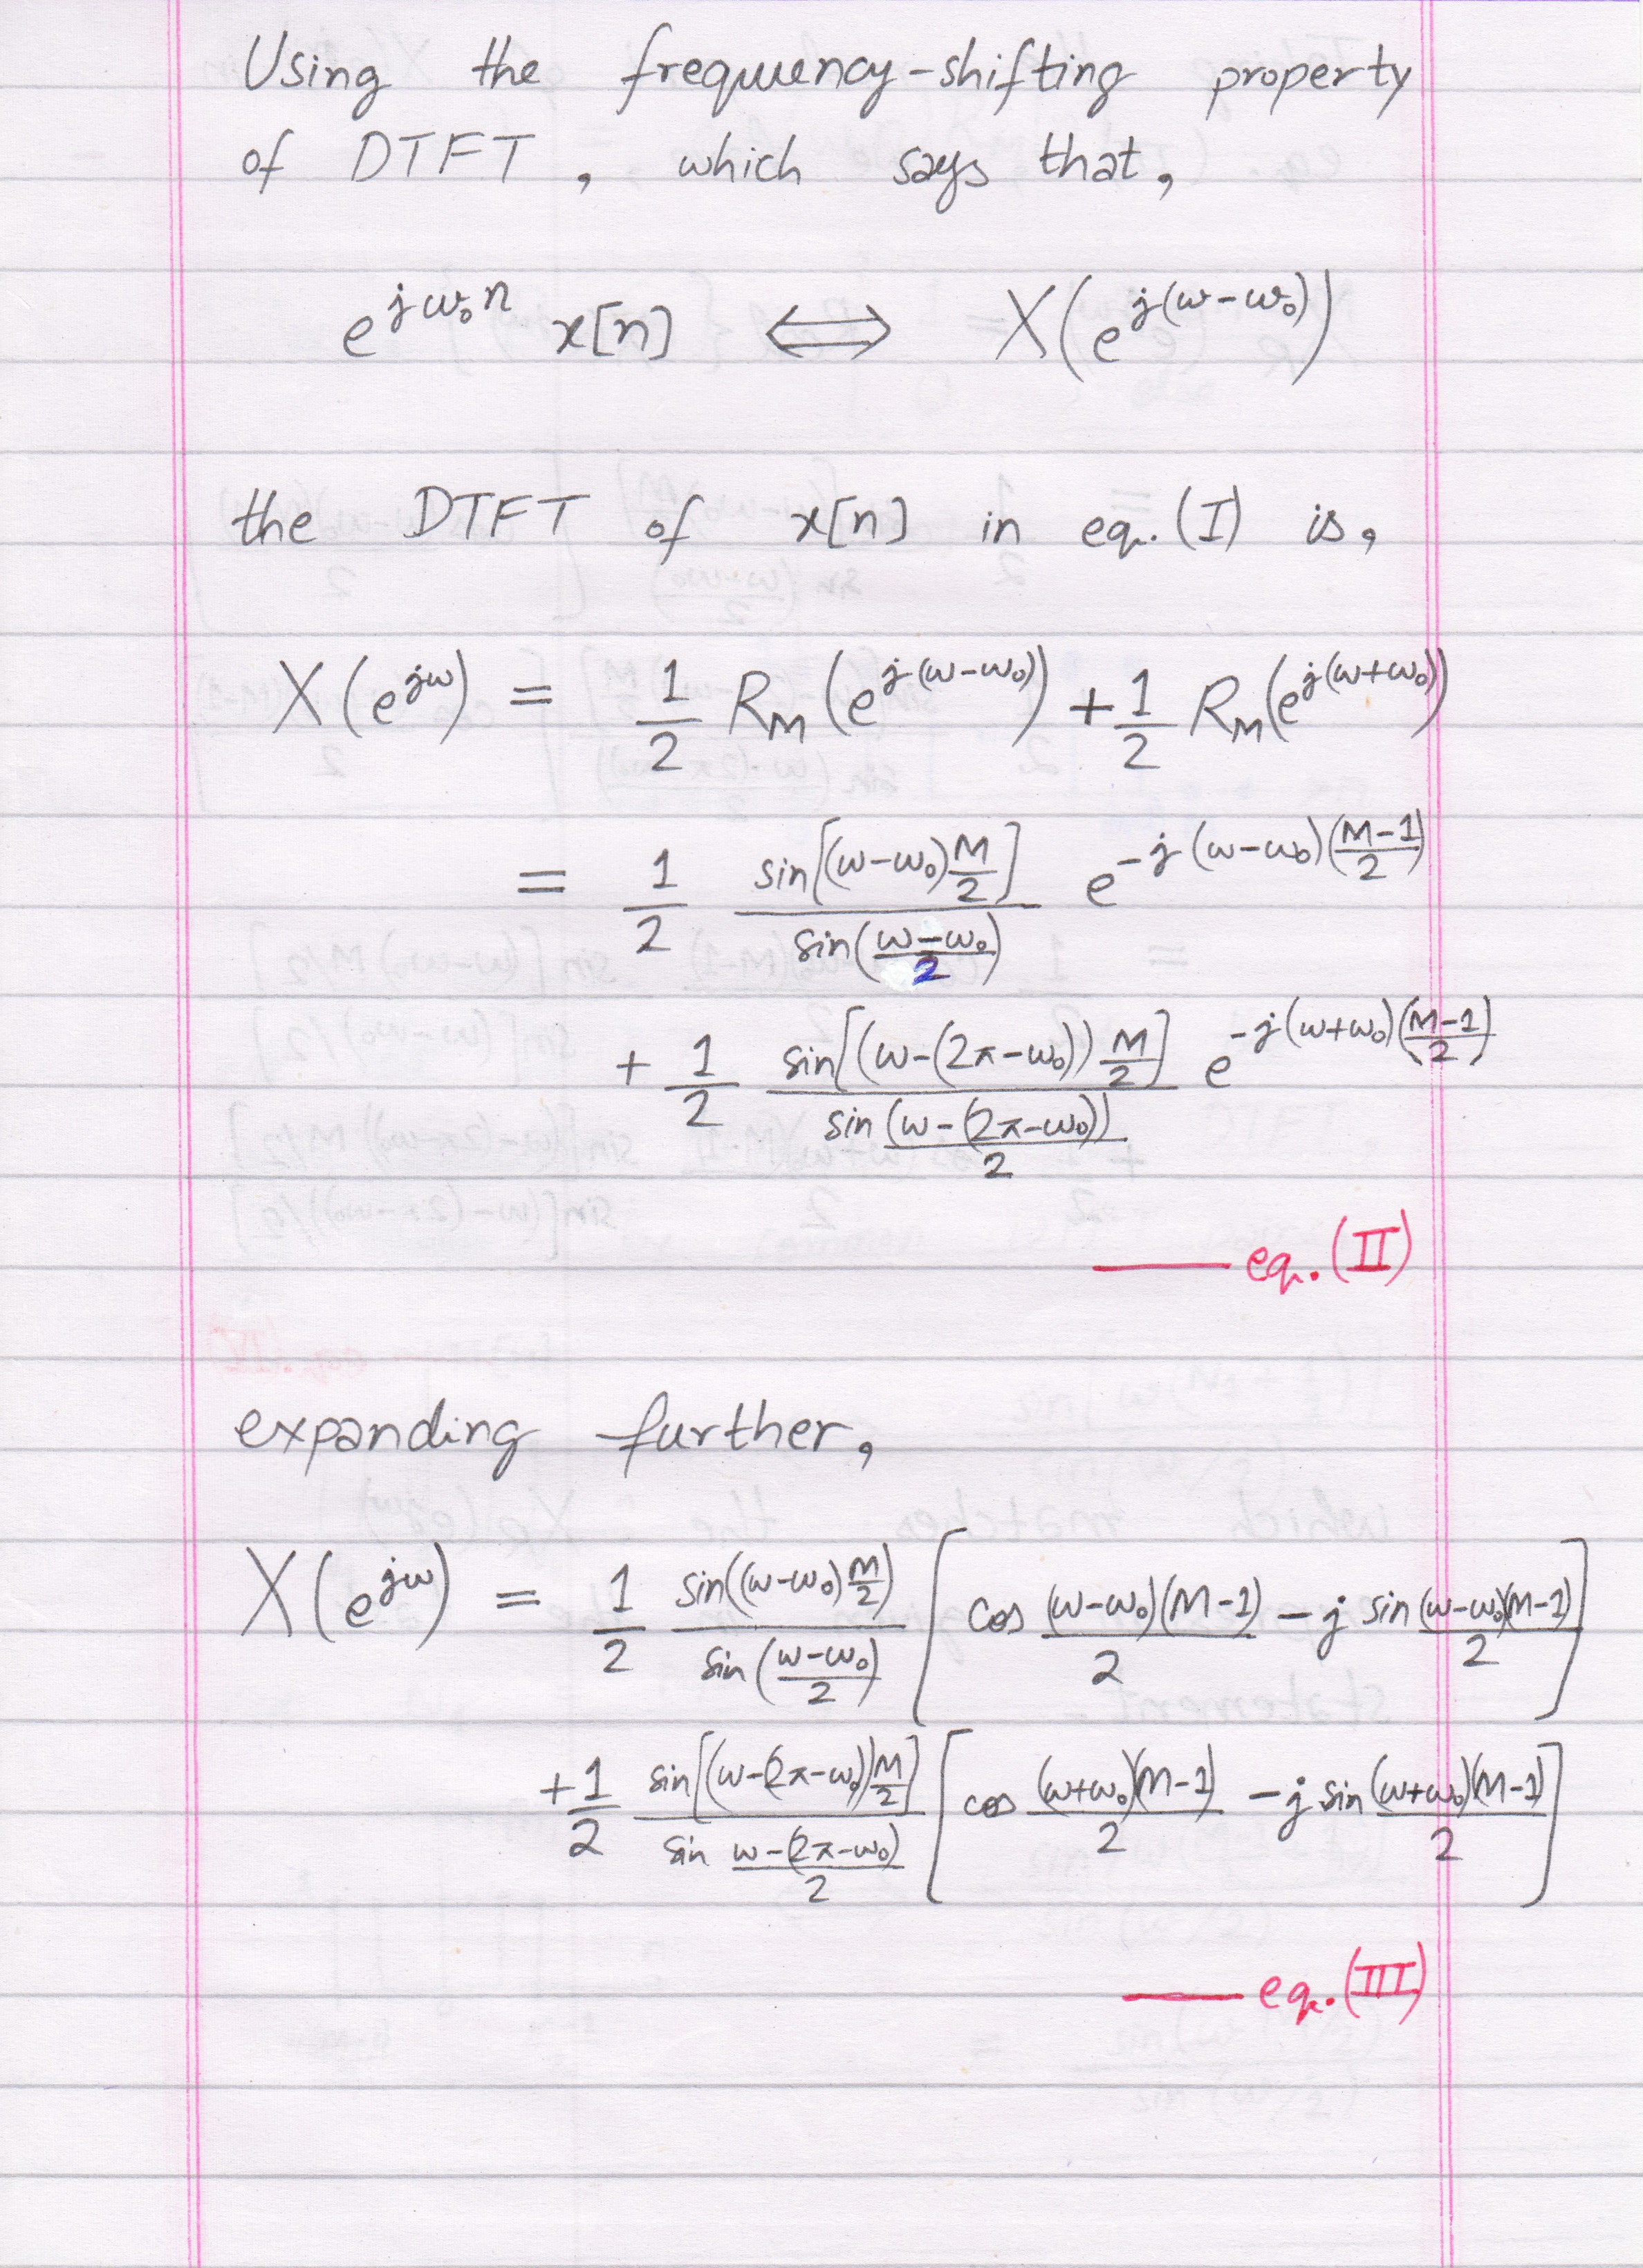 Using the frequency-shifting property
of DTFT, which says that,
e^{jω₀n} x[n] ⟺ X(e^{j(ω-ω₀)})
the DTFT of x[n] in eq.(I) is,
X(e^{jω}) = \frac{1}{2} R_M(e^{j(ω-ω₀)}) + \frac{1}{2} R_M(e^{j(ω+ω₀)})
= \frac{1}{2} \frac{sin[(ω-ω₀)\frac{M}{2}]}{sin(\frac{ω-ω₀}{2})} e^{-j(ω-ω₀)(\frac{M-1}{2})}
+ \frac{1}{2} \frac{sin[(ω-(2π-ω₀))\frac{M}{2}]}{sin\frac{(ω-(2π-ω₀))}{2}} e^{-j(ω+ω₀)(\frac{M-1}{2})}
— eq.(II)
expanding further,
X(e^{jω}) = \frac{1}{2} \frac{sin((ω-ω₀)\frac{M}{2})}{sin(\frac{ω-ω₀}{2})} [cos \frac{(ω-ω₀)(M-1)}{2} - j sin \frac{(ω-ω₀)(M-1)}{2}]
+ \frac{1}{2} \frac{sin[(ω-(2π-ω₀))\frac{M}{2}]}{sin \frac{ω-(2π-ω₀)}{2}} [cos \frac{(ω+ω₀)(M-1)}{2} - j sin \frac{(ω+ω₀)(M-1)}{2}]
— eq.(III)